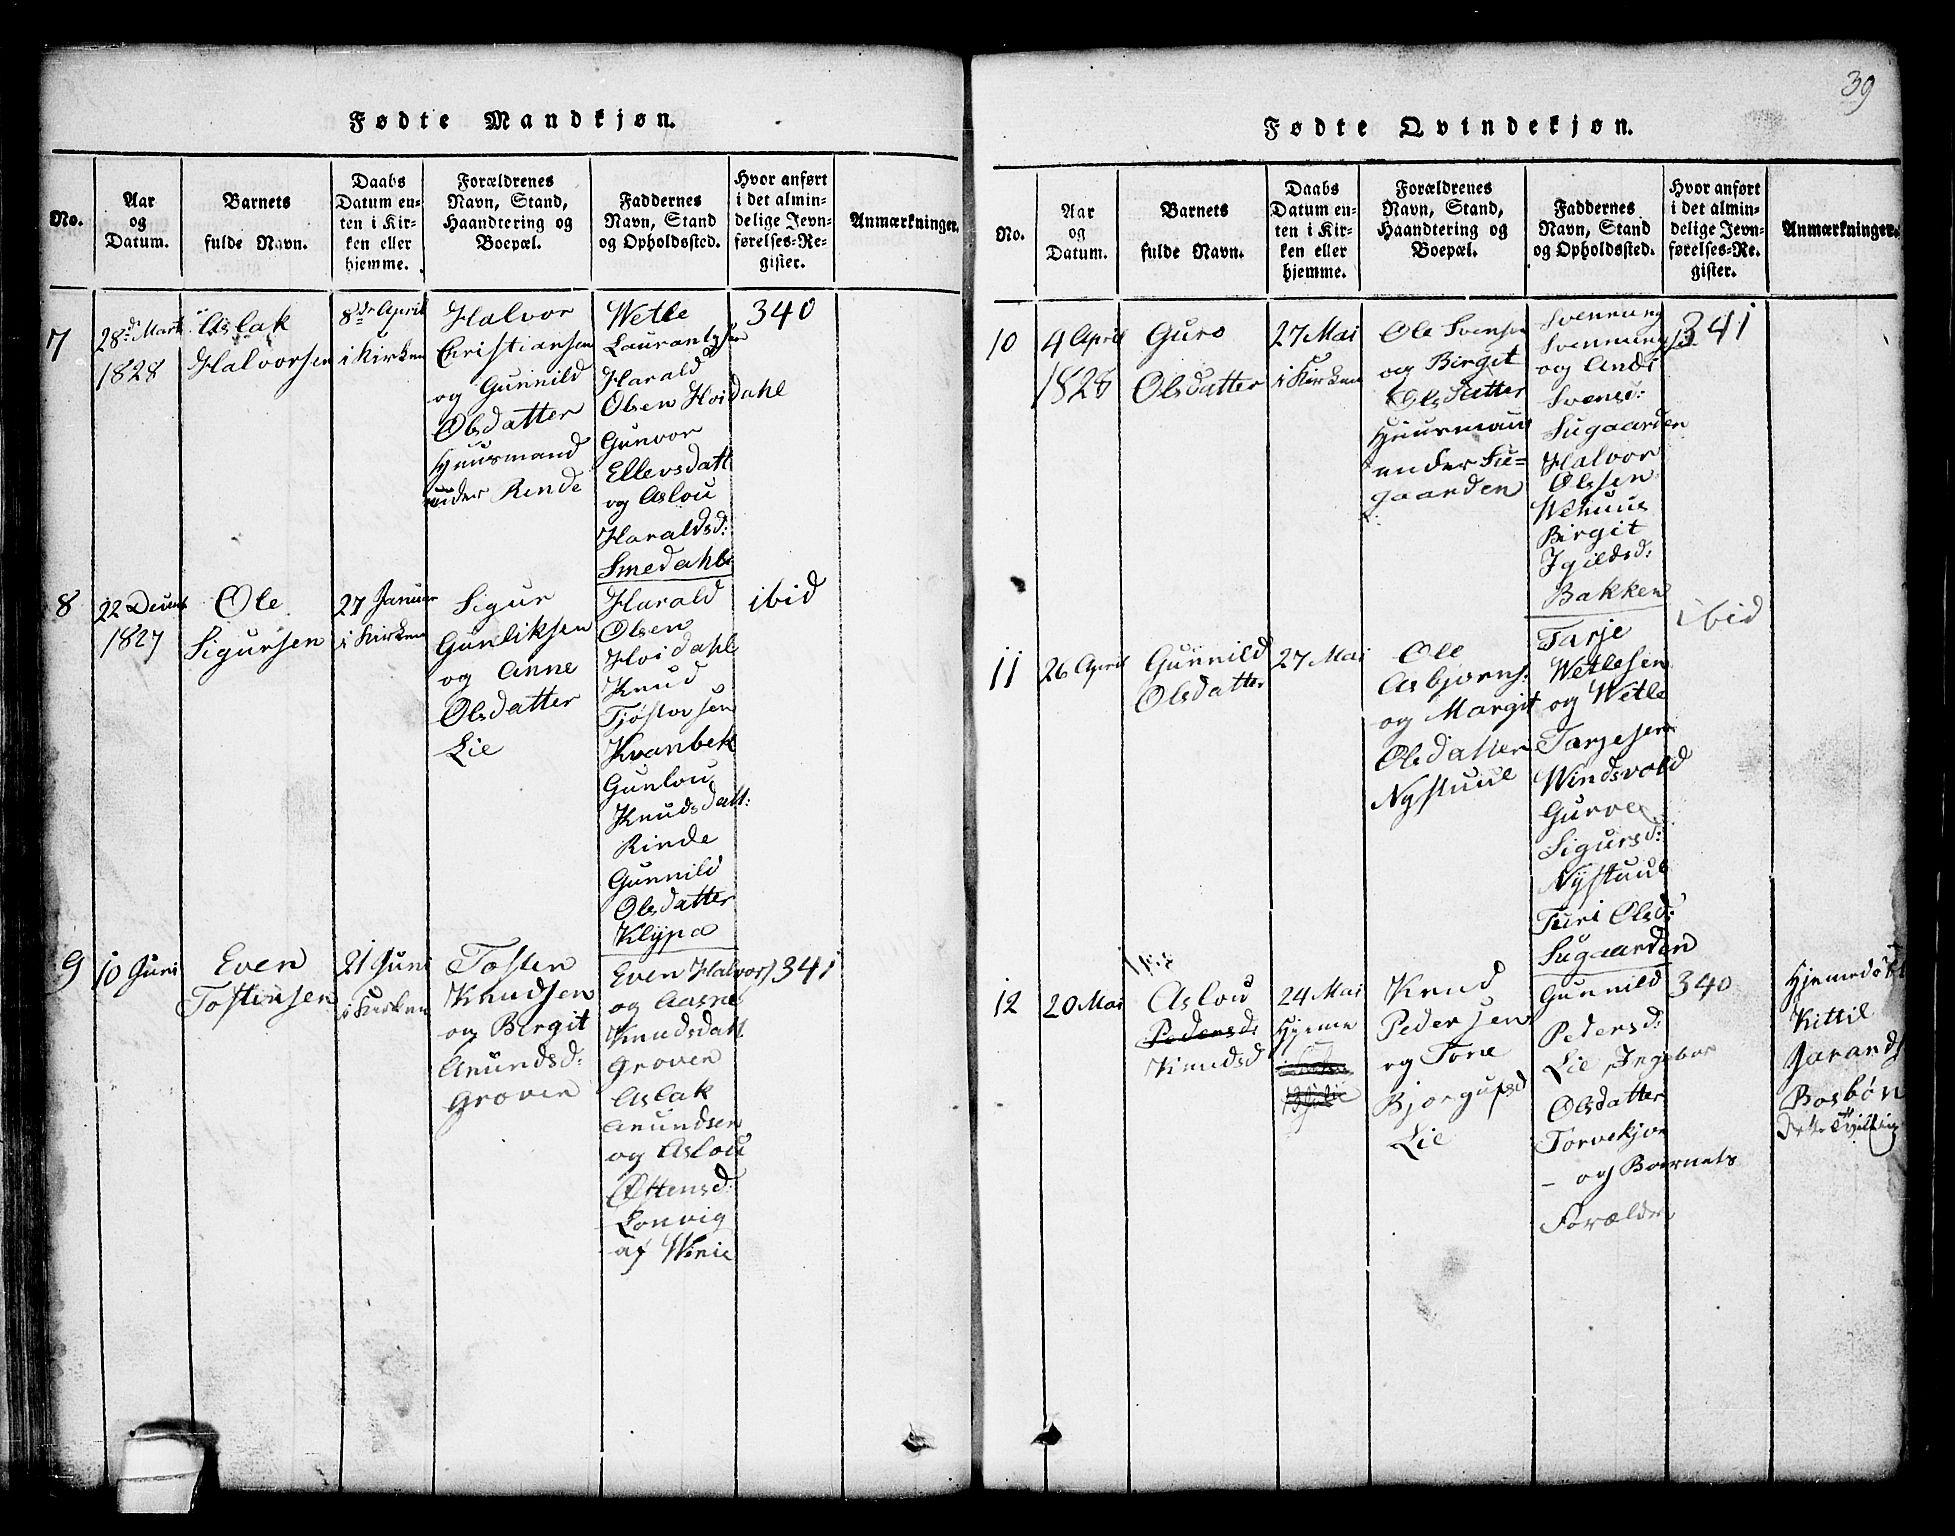 Fødte Mandkjøn.
No.
Aar
og
Datum.
Barnets
fulde Navn.
Daabs
Datum en-
ten i Kir-
ken eller
hjemme.
Forældrenes
Navn, Stand,
Haandtering og
Boepæl.
Faddernes
Navn, Stand
og Opholdssted.
Hvor anført
i det almin-
delige Jevn-
førelses-Re-
gister.
Anmærkninger.
7
28d Marts
1828
Aslak
Halvorsen
8de April
i Kirken
Halvor
Christiansen
og Gunnild
Olsdatter
Huusmand
under Rinde
Wetle
Laurantzsen
Harald
Olsen Hvidahl
Gunvor
Ellevsdatt
og Aslou
Haraldsd:
Smedahl
340
8
22 Decmb
1827
Ole
Sigursen
27 Januar
i Kirken
Sigur
Gunliksen
og Anne
Olsdatter
Lie
Harald
Olsen
Hvidahl
Knud
Tjøstovsen
Kvanbek
Gunlou
Knudsdatt:
Rinde
Gunnild
Olsdatter
Klypa
ibid
9
10 Juni
Even
Tostensen
21 Juni
i Kirken
Tosten
Knudsen
og Birgit
Anundsd:
Groven
Even Halvors
og Aasne
Knudsdatt
Groven
Aslak
Anundsen
og Aslou
Østensd:
Lonvig
af Winie
341
39
Fødte Qvindekjøn.
No.
Aar
og
Datum.
Barnets
fulde Navn.
Daabs
Datum en-
ten i Kir-
ken eller
hjemme.
Forældrenes
Navn, Stand,
Haandtering og
Boepæl.
Faddernes
Navn, Stand
og Opholdssted.
Hvor anført
i det almin-
delige Jevn-
førelses-Re-
gister.
Anmærkninger.
10
4 April
1828
Guro
Olsdatter
27 Mai
i Kirken
Ole Svensen
og Birgit
Olsdatter
Huusmand
under Su-
gaarden
Svennung
Svennungs
og Andi
Svensd:
Sugaarden
Halvor
Olsen
Wehuus
Birgit
Igildsd:
Bakken
341
11
26 April
Gunnild
Olsdatter
27 Mai
Ole
Asbjørns:
og Margit
Olsdatter
Nystuul
Tarje
Wetlesen
og Wetle
Tarjesen
Windsvold
Gurve
Sigursd:
Nystuul
Turi Olsd:
Sugaarden
ibid
12
20 Mai
Aslou
Pedersd:
Knudsd
24 Mai
Hjeme
Knud
Pedersen
og Tone
Bjørgufsd
Lie
Gunnild
Pedersd:
Lie, Ingebor
Olsdatter
Torvekjør
– og Barnets
Forælder
340
Hjemedøbt
Kittil
Jarands
Bosbøn
Dette Tvilling